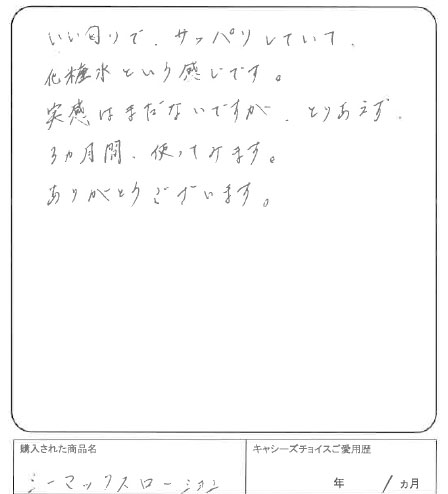 いい匂りで、サッパリしていて、
化粧水という感じです。
実感はまだないですが、とりあえず、
3ヵ月間、使ってみます。
ありがとうございます。
購入された商品名
キャシーズチョイスご愛用歴
シーマックスローション
年 1ヵ月